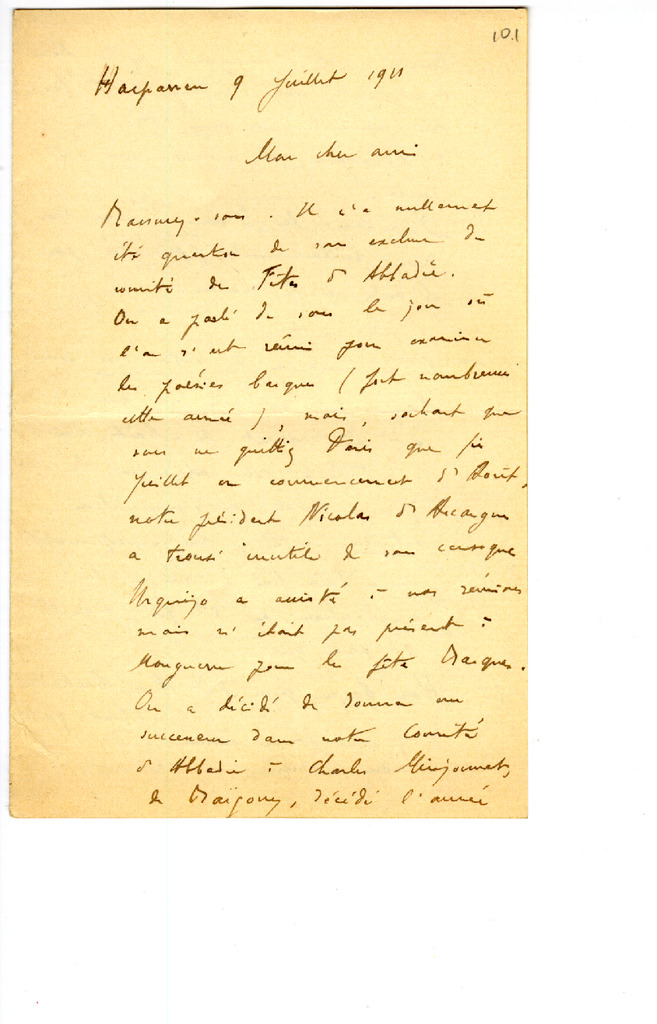 101
Hasparren 9 Juillet 1911
Mon cher ami
Rassurez-vous. Il n'a nullement
été question de vous exclure du
comité des Fêtes d'Abbadie.
On a parlé de vous le jour où
l'on s'est réuni pour examiner
les poésies basques (fort nombreuses
cette année), mais, sachant que
vous ne quittez Paris que fin
Juillet ou commencement d'Août,
notre président Nicolas d'Arcangues
a trouvé inutile de vous convoquer
Urquijo a assisté à nos réunions
mais n'était pas présent à
Mouguerre pour les fêtes Basques.
On a décidé de donner un
successeur dans notre Comité
d'Abbadie à Charles
de Baïgorry, décédé l'année